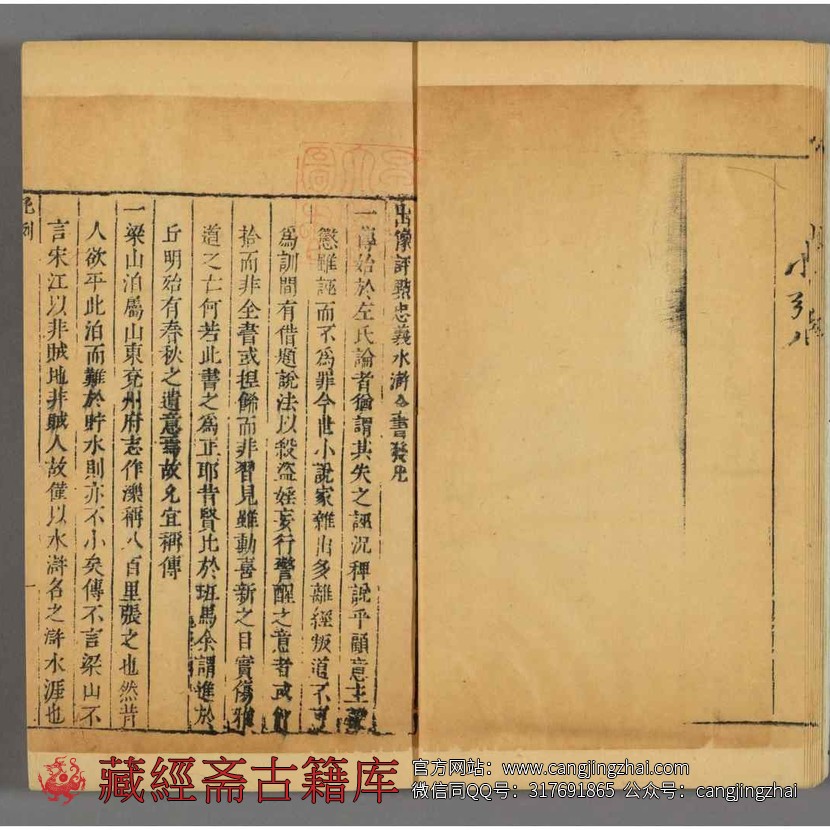 出像評點忠義水滸全書發凡
一傳始於左氏論者猶謂其失之誣況稗說乎顧意主勸
懲雖誣而不為罪今世小說家雜出多離經叛道不可
為訓間有借題說法以殺盜婬妄行警醒之意者或釘
拾而非全書或捏餙而非習見雖動喜新之目實傷雅
道之亡何若此書之為正耶昔賢比於班馬余謂進於
丘明殆有春秋之遺意焉故允宜稱傳
一梁山泊屬山東兗州府志作濼稱八百里張之也然昔
人欲平此泊而難於貯水則亦不小矣傳不言梁山不
言宋江以非賊地非賊人故僅以水滸名之滸水涯也
一
藏經斋古籍库
官方网站：www.cangjingzhai.com
微信同QQ号：317691865 公众号：cangjingzhai